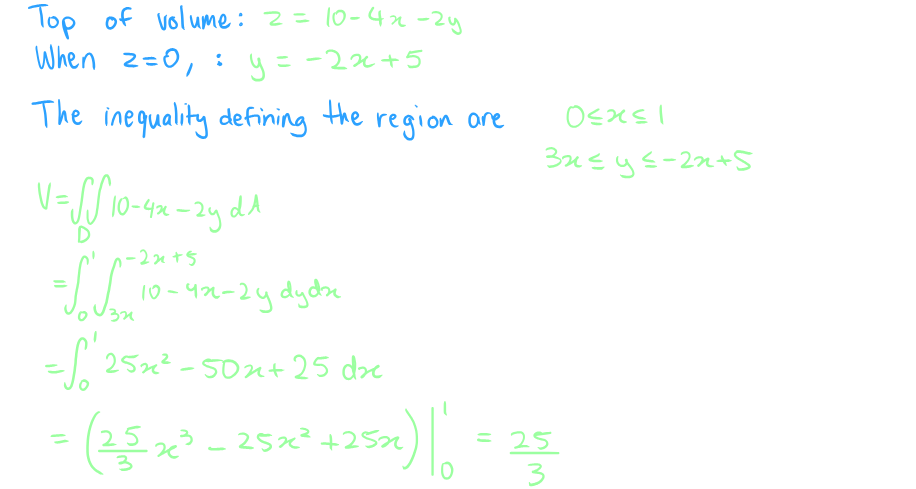 Top of volume: z = 10-4x-2y
When z=0, : y = -2x+5
The inequality defining the region are 0≤x≤1
3x ≤ y ≤ -2x+5
V=∬_D 10-4x-2y dA
=∫_0^1 ∫_{3x}^{-2x+5} 10-4x-2y dydx
=∫_0^1 25x² -50x+25 dx
= (25/3 x³ - 25x² +25x)|_0^1 = 25/3